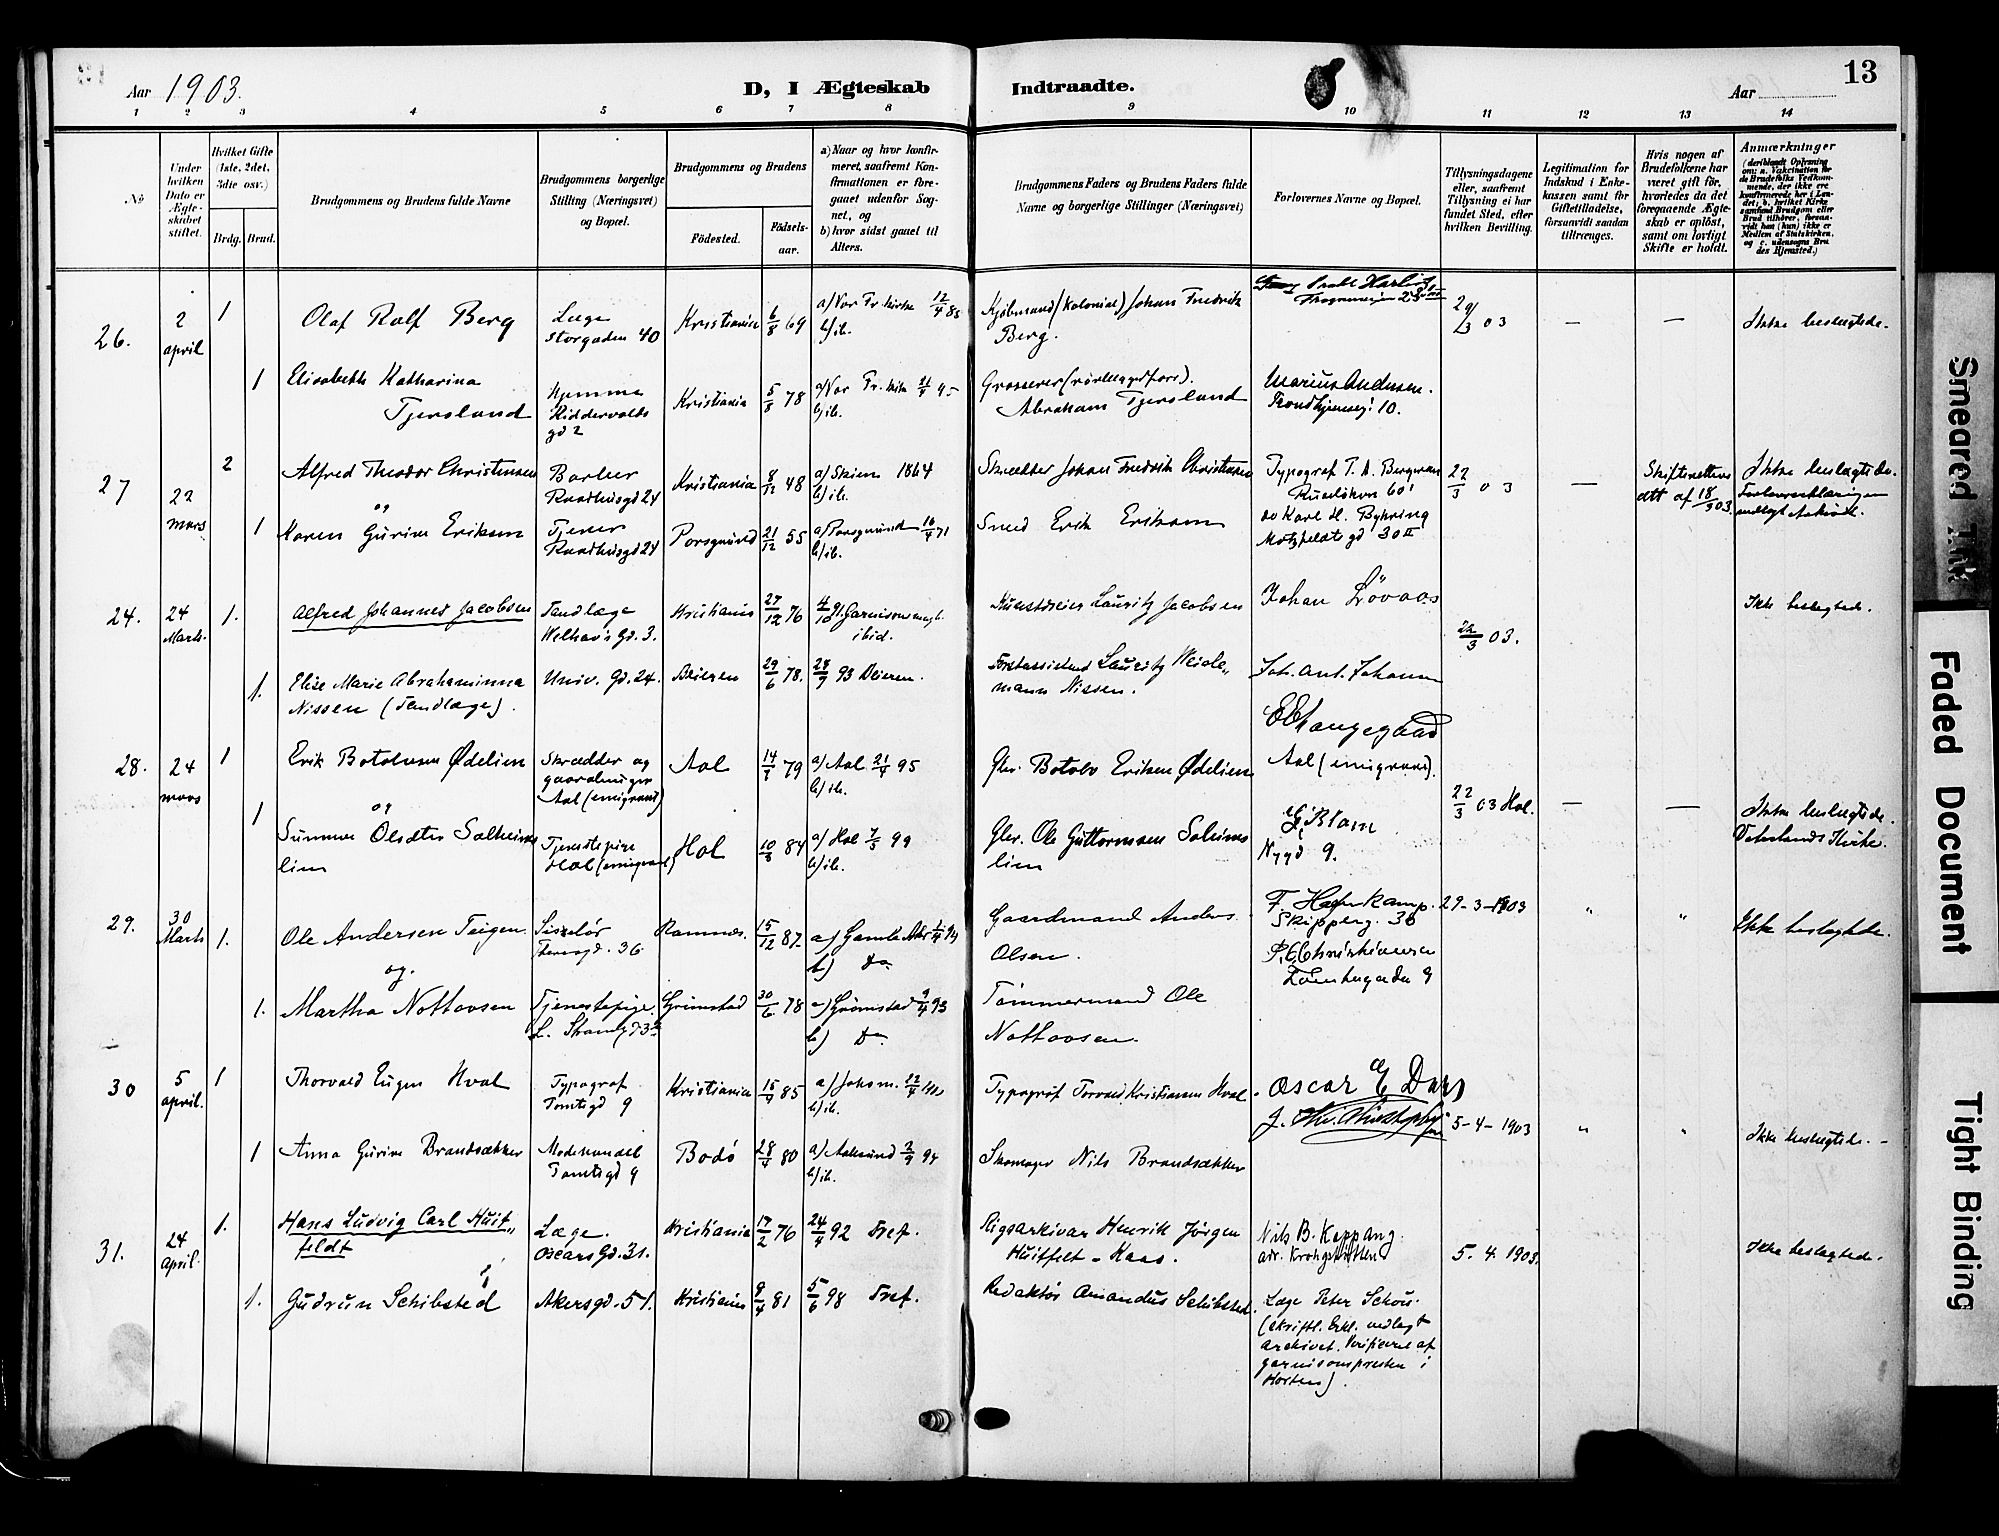 Aar 1903.
D, I Ægteskab Indtraadte.
Aar
13
1 2 3 4 5 6 7 8 9 10 11 12 13 14
№
Under hvilken Dato er Ægteskabet stiftet.
Hvilket Gifte (1ste, 2det, 3die osv.)
Brdg. Brud.
Brudgommens og Brudens fulde Navne
Brudgommens borgerlige Stilling (Næringsvei) og Bopæl.
Brudgommens og Brudens
Fødested.
Fødselsaar.
a) Naar og hvor konfirmeret, saafremt Konfirmationen er foregaaet udenfor Sognet, og
b) hvor sidst gaaet til Alters.
Brudgommens Faders og Brudens Faders fulde Navne og borgerlige Stillinger (Næringsvei)
Forlovernes Navne og Bopæl.
Tillysningsdagene eller, saafremt Tillysning ei har fundet Sted, efter hvilken Bevilling.
Legitimation for Indskud i Enkekassen samt for Giftetilladelse, forsaavidt saadan tiltrænges.
Hvis nogen af Brudefolkene har været gift før, hvorledes da det foregaaende Ægteskab er opløst, samt om lovligt Skifte er holdt.
Anmærkninger
(deriblandt Oplysning om: a. Vakcination for de Brudefolks Vedkommende, der ikke ere konfirmerede her i Landet, b. hvilket Kirkesamfund Brudgom eller Brud tilhører, forsaavidt han (hun) ikke er Medlem af Statskirken, og c. udensogns Brudes Hjemsted.)
26. 2 april 1 Olaf Rolf Berg
Læge Storgaden 40
Kristiania 6/8 69
a) Vor Fr. kirke 12/4 85 b) ib.
Kjøbmand (Kolonial) Johan Fredrik Berg.
29/3 03 — —
Ikke beslegtede.
1 Elisabeth Katharina Tjersland
Hjemme Riddervolds gd 2
Kristiania 5/8 78
a) Vor Fr. kirke 21/4 95 b) ib.
Grosserer
Abraham Tjersland
Marius Andersen.
Trondhjemsvei 10.
27 22 mars 2 Alfred Theodor Christensen
og
Barber Raadhusgd 24
Kristiania 8/12 48
a) Skien 1864 b) ib.
Skrædder Johan Fredrik Christensen
Typograf T. A. Bergman
Ruseløkve 60'
22/3 03 —
Skifterettens att af 18/3 03.
Ikke beslegtede.
1 Maren Gurine Eriksen
Tjener Raadhusgd 24
Porsgrund 21/12 55
a) Porsgrund 16/4 71 b) ib.
Smed Erik Eriksen
Karl H. Byhring
Motzfeldts gd 30 II
24. 24 Marts. 1. Alfred Johannes Jacobsen
Tandlæge Welhav's Gd. 3.
Kristiania 27/12 76
4/10 91 Garnisonsmgh. ibid.
Lauritz Jacobsen
Johan Løvaas
22/3 03.
Ikke beslegtede.
1. Elise Marie Abrahaminna Nissen (Tandlæge).
Univ. Gd. 24.
Beieren 29/6 78.
24/9 93 Beieren.
Forstassistend Lauritz Weidemann Nissen.
Joh. Ant. Johansen
28. 24 mars 1 Erik Botolvsen Ødelien
og
Skrædder og gaardbruger Aal (emigrant)
Aal 14/3 79
a) Aal 21/4 95 b) ib.
Gbr. Botolv Eriksen Ødelien
Aal (emigrant).
22/3 03 Hol. — —
Ikke beslegtede.
Vaterlands Kirke.
1 Sunneva Olsdtr Solheimslien
Tjenestepige Hol (emigrant)
Hol 10/3 84
a) Hol 7/5 99 b) ib.
Gbr. Ole Guttormsen Solheimslien
Nygd 9.
29. 30 Marts 1. Ole Andersen Teigen.
og.
Theresgd. 36
Ramnes. 15/12 87
a) Gamle Aker b) Do
Gaardmand Anders Olsen.
F. Hagerkamp.
Skipperg. 36
P. C. Christiansen
29-3-1903 " "
Ikke beslegtede.
1. Martha Nottovsen
Tjenestepige.
Grimstad 30/6 78
a) Grimstad 9/4 93 b) Do
Tømmermand Ole Nottovsen.
30 5 april. 1 Thorvald Eugen Hval
Typograf Tomtegd 9
Kristiania 15/9 85
b) ib.
Typograf Torvald Kristiansen Hval
Oscar E Dahl
5-4-1903 " "
Ikke beslegtede.
1 Anna Gurine Brandsækker
Modehandel Tomtegd 9
Bodø 28/4 80
a) Aalesund 2/9 94 b) ib.
Skomager Nils Brandsækker
31. 24 April. 1. Hans Ludvig Carl Huitfeldt
Læge. Oscars Gd. 31.
Kristiania 17/2 76
24/4 92 Tref.
Rigsarkivar Henrik Jørgen Huitfelt-Kaas.
Nils B. Koppang.
5. 4. 1903.
Ikke beslegtede.
1. Gudrun Schibsted
Akersgd. 51.
Kristiania 9/4 81
5/6 98 Tref.
Redaktør Amandus Schibsted.
Læge Peter Schou.
(skriftl. Erkl. vedlagt arkivet. Verificeret af garnisonspresten i Horten).
Smeared Ink
Faded Document
Tight Binding